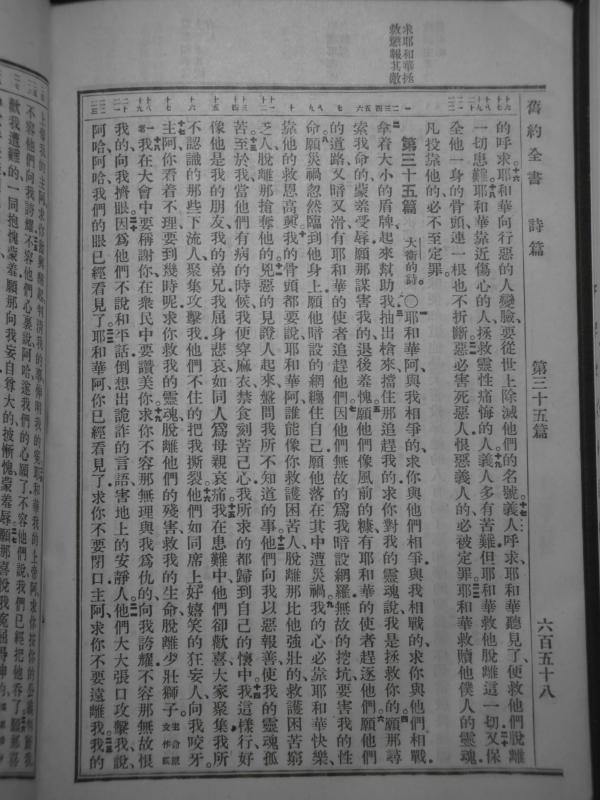 舊約全書 詩篇 第三十五篇 六百五十八
的呼求耶和華向行惡的人變臉要從世上除滅他們的名號義人呼求耶和華聽見了便救他們脫離
一切患難耶和華靠近傷心的人拯救靈性痛悔的人義人多有苦難但耶和華救他脫離這一切又保
全他一身的骨頭連一根也不折斷惡必害死惡人恨惡義人的必被定罪耶和華救贖他僕人的靈魂
凡投靠他的必不至定罪
第三十五篇 大衛的詩 〇耶和華阿與我相爭的求你與他們相爭與我相戰的求你與他們相戰
拿着大小的盾牌起來幫助我抽出槍來擋住那追趕我的求你對我的靈魂說我是拯救你的願那尋
索我命的蒙羞受辱願那謀害我的退後羞愧願他們像風前的糠有耶和華的使者趕逐他們願他們
的道路又暗又滑有耶和華的使者追趕他們因他們無故的爲我暗設網羅無故的挖坑要害我的性
命願災禍忽然臨到他身上願他暗設的網纏住自己願他落在其中遭災禍我的心必靠耶和華快樂
靠他的救恩高興我的骨頭都要說耶和華阿誰能像你救護困苦人脫離那比他強壯的救護困苦窮
乏人脫離那搶奪他的兇惡的見證人起來盤問我所不知道的事他們向我以惡報善使我的靈魂孤
苦至於我當他們有病的時候我便穿麻衣禁食刻苦己心我所求的都歸到自己的懷中我這樣行好
像他是我的朋友我的弟兄我屈身悲哀如同人爲母親哀痛我在患難中他們卻歡喜大家聚集我所
不認識的那些下流人聚集攻擊我他們不住的把我撕裂他們如同席上好嬉笑的狂妄人向我咬牙
主阿你看着不理要到幾時呢求你救我的靈魂脫離他們的殘害救我的生命脫離少壯獅子
我在大會中要稱謝你在衆民中要讚美你求你不容那無理與我爲仇的向我誇耀不容那無故恨
我的向我擠眼因爲他們不說和平話倒想出詭詐的言語害地上的安靜人他們大大張口攻擊我說
阿哈阿哈我們的眼已經看見了耶和華阿你已經看見了求你不要閉口主阿求你不要遠離我我的
求耶和華拯
救懲報其敵
不容他們向我誇耀不容他們心裏說阿哈遂我們的心願了不容他們說我們已經把他吞了願那喜
歡我遭難的一同抱愧蒙羞願那向我妄自尊大的披慚愧蒙羞辱願那喜悅我冤屈得伸的